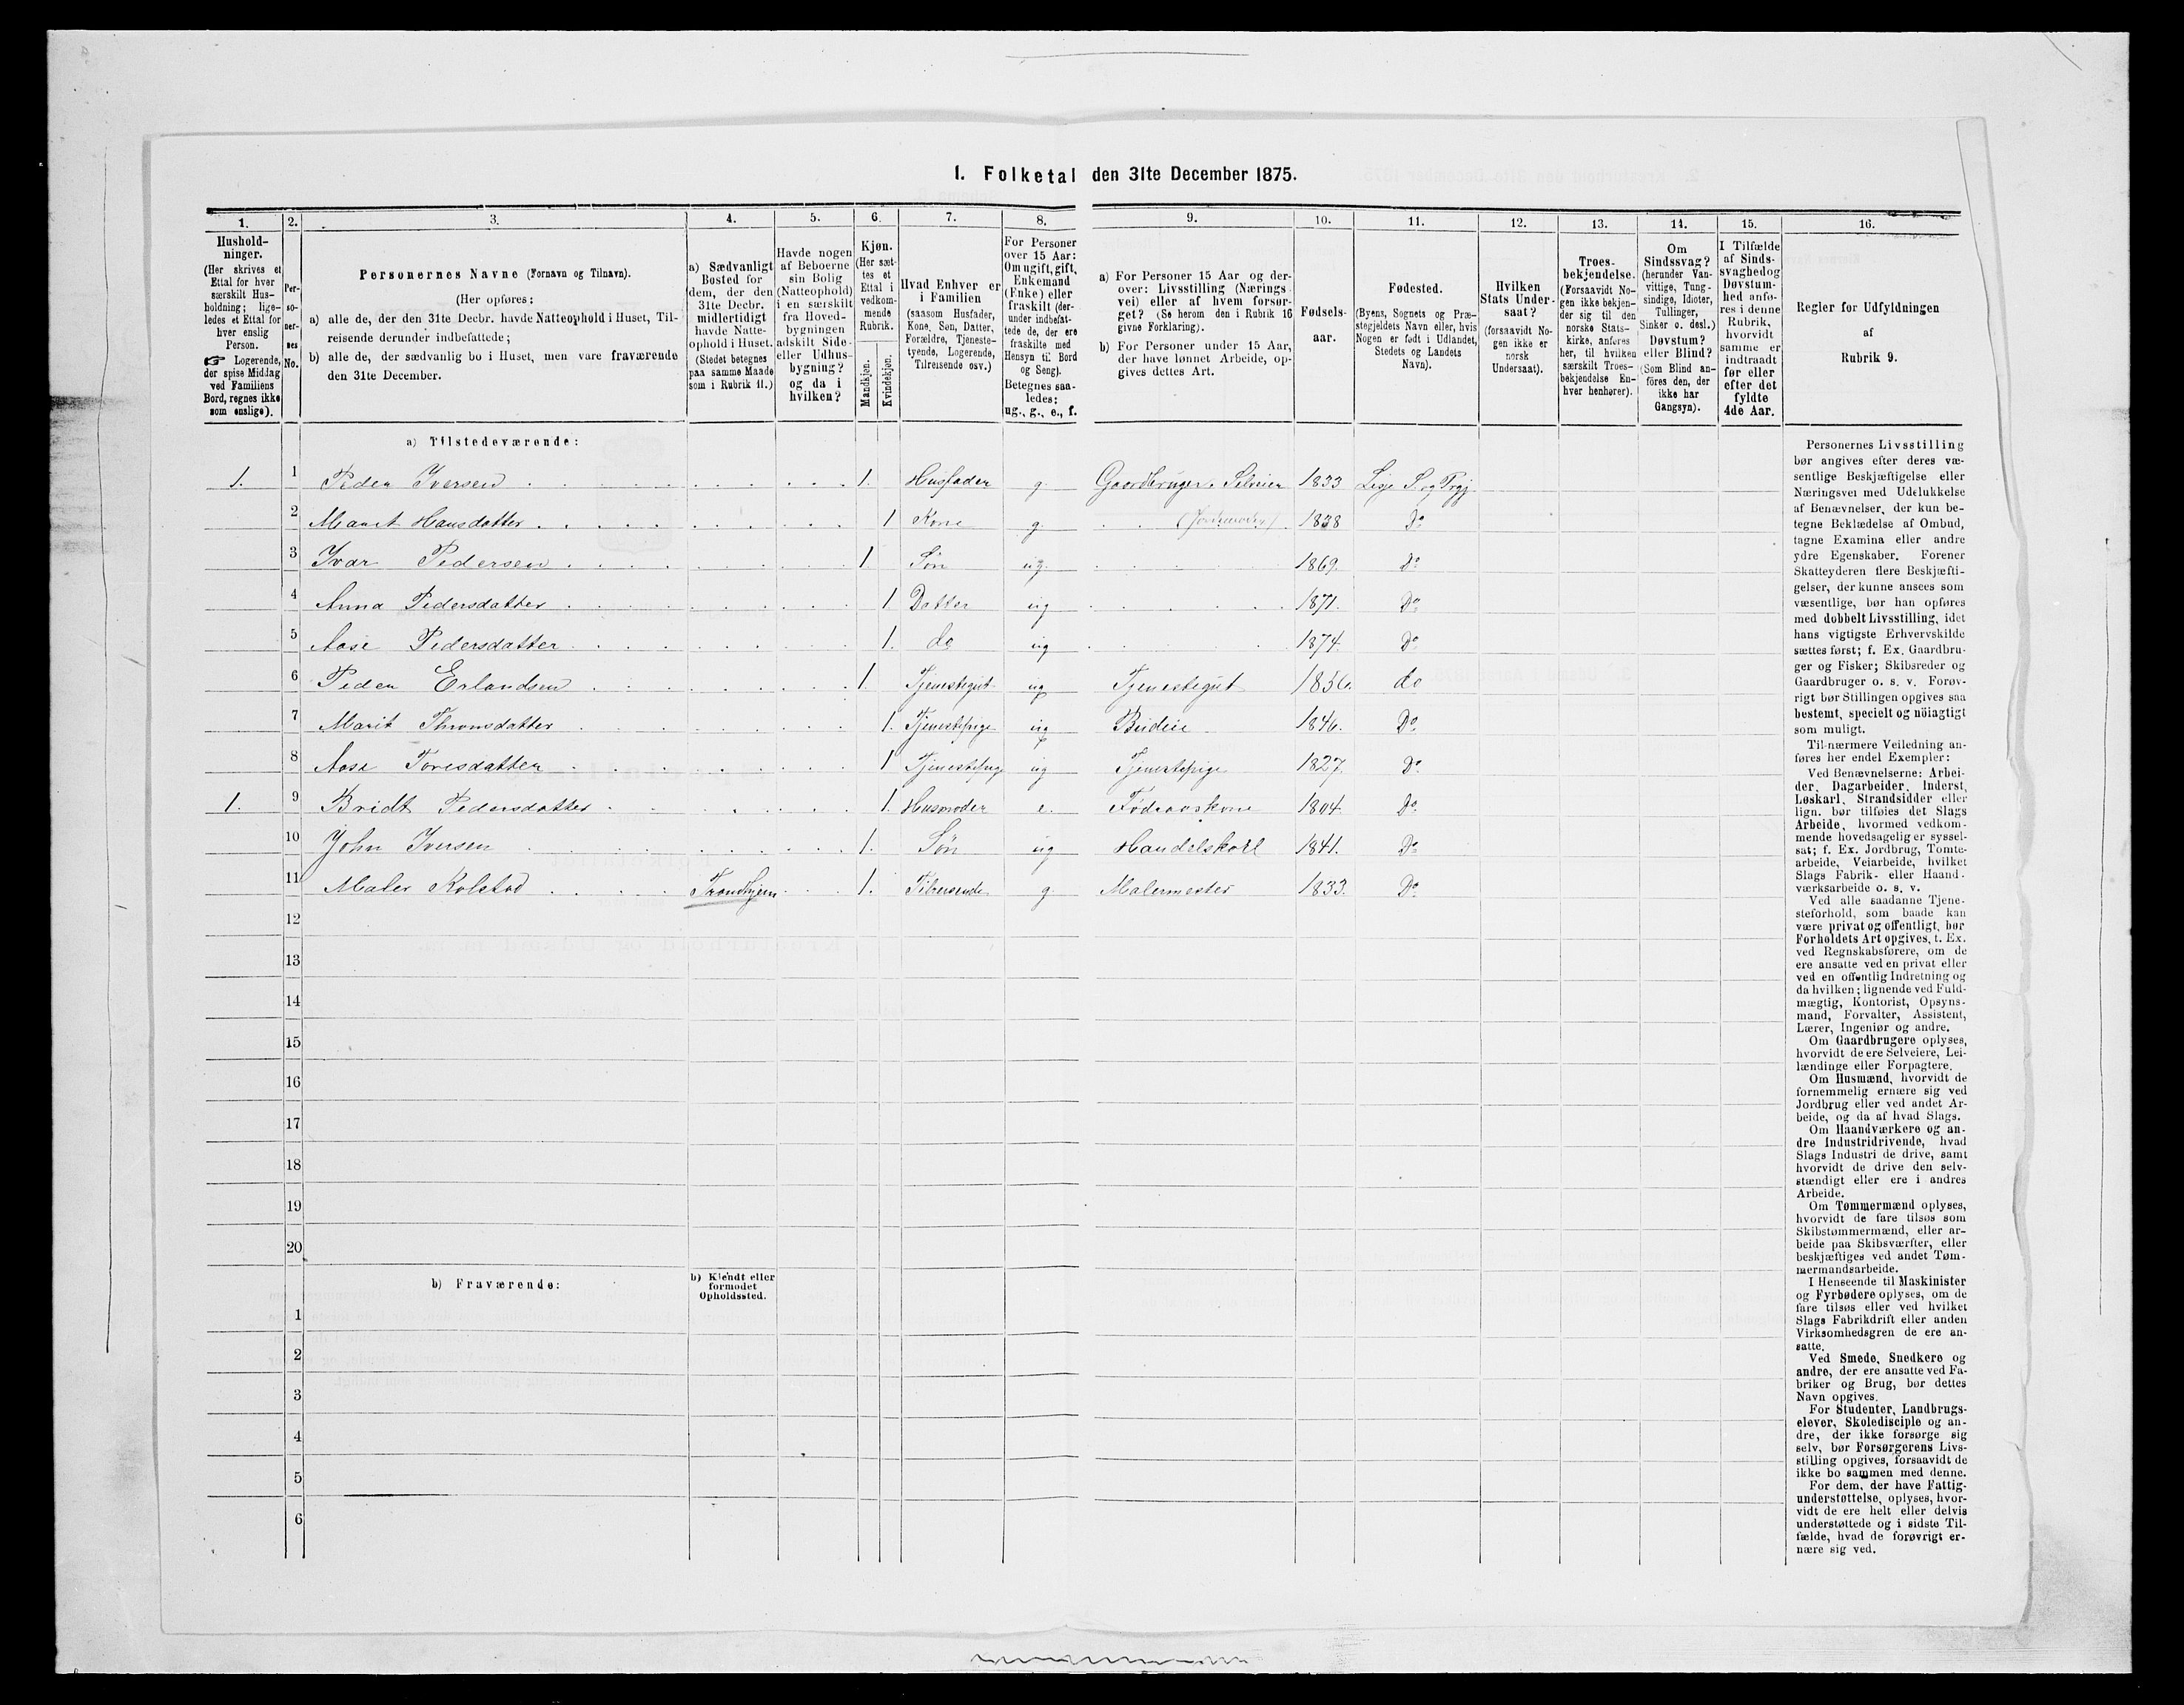 1. Folketal den 31te December 1875.
1. 2. 3. 4. 5. 6. 7. 8. 9. 10. 11. 12. 13. 14. 15. 16.
Hushold-
ninger.
(Her skrives et
Ettal for hver
særskilt Hus-
holdning; lige-
ledes et Ettal for
hver enslig
Person.
☞ Logerende,
der spise Middag
ved Familiens
Bord, regnes ikke
som enslige).
Per-
so-
ner-
nes
No.
Personernes Navne (Fornavn og Tilnavn).
(Her opføres:
a) alle de, der den 31te Decbr. havde Natteophold i Huset, Til-
reisende derunder indbefattede;
b) alle de, der sædvanlig bo i Huset, men vare fraværende
den 31te December.
a) Sædvanligt
Bosted for
dem, der den
31te Decbr.
midlertidigt
havde Natte-
ophold i Huset.
(Stedet betegnes
paa samme Maade
som i Rubrik 11.)
Havde nogen
af Beboerne
sin Bolig
(Natteophold)
i en særskilt
fra Hoved-
bygningen
adskilt Side-
eller Udhus-
bygning?
og da i
hvilken?
Kjøn.
(Her sæt-
tes et
Ettal i
vedkom-
mende
Rubrik.
Mandkjøn.
Kvindekjøn.
Hvad Enhver er
i Familien
(saasom Husfader,
Kone, Søn, Datter,
Forældre, Tjeneste-
tyende, Logerende,
Tilreisende osv.)
For Personer
over 15 Aar:
Om ugift, gift,
Enkemand
(Enke) eller
fraskilt (der-
under indbefat-
tede de, der ere
fraskilte med
Hensyn til Bord
og Seng).
Betegnes saa-
ledes:
ug., g., e., f.
a) For Personer 15 Aar og der-
over: Livsstilling (Nærings-
vei) eller af hvem forsør-
get? (Se herom den i Rubrik 16
givne Forklaring).
b) For Personer under 15 Aar,
der have lønnet Arbeide, op-
gives dettes Art.
Fødsels-
aar.
Fødested.
(Byens, Sognets og Præ-
stegjeldets Navn eller, hvis
Nogen er født i Udlandet,
Stedets og Landets
Navn).
Hvilken
Stats Under-
saat?
(forsaavidt No-
gen ikke er
norsk
Undersaat).
Troes-
bekjendelse.
(Forsaavidt No-
gen ikke bekjen-
der sig til den
norske Stats-
kirke, anføres
her, til hvilken
særskilt Troes-
bekjendelse En-
hver henhører).
Om
Sindssvag?
(herunder Van-
vittige, Tung-
sindige, Idioter,
Tullinger,
Sinker o. desl.)
Døvstum?
eller Blind?
(Som Blind an-
føres den, der
ikke har
Gangsyn).
I Tilfælde
af Sinds-
svaghed og
Døvstum-
hed anfø-
res i denne
Rubrik,
hvorvidt
samme er
indtraadt
før eller
efter det
fyldte
4de Aar.
Regler for Udfyldningen
af
Rubrik 9.
a) Tilstedeværende:
1. 1 Peder Iversen 1. Husfader g. Gaardbruger. Selveier 1833 Lesje S. og Prgj.
2 Marit Hansdatter 1 Kone g. 1838 Do
3 Ivar Pedersen 1. Søn ug. 1869. Do
4 Anna Pedersdatter 1 Datter ug 1871. Do
5 Aase Pedersdatter 1. do ug 1874. Do
6 Peder Erlandsen 1. Tjenestegut ug Tjenestegut 1856. do
7 Marit Thronsdatter 1. Tjenestepige ug Budeie 1846. Do
8 Aase Toresdatter 1 Tjenestepige ug Tjenestepige 1827. Do
1. 9 Bridt Pedersdatter 1. Husmoder e. Føderaadskone 1804. Do
10 John Iversen 1. Søn ug Handelskarl 1841. Do
11 Maler Kolstad Trondhjem 1. Tilreisende g. Malermester 1833. Do
12
13
14
15
16
17
18
19
20
b) Fraværende:
b) Kjendt eller
formodet
Opholdssted.
1
2
3
4
5
6
Personernes Livsstilling
bør angives efter deres væ-
sentlige Beskjæftigelse eller
Næringsvei med Udelukkelse
af Benævnelser, der kun be-
tegne Beklædelse af Ombud,
tagne Examina eller andre
ydre Egenskaber. Forener
Skatteyderen flere Beskjæfti-
gelser, der kunne ansees som
væsentlige, bør han opføres
med dobbelt Livsstilling, idet
hans vigtigste Erhvervskilde
sættes først; f. Ex. Gaardbru-
ger og Fisker; Skibsreder og
Gaardbruger o. s. v. Forøv-
rigt bør Stillingen opgives saa
bestemt, specielt og nöiagtigt
som muligt.
Til nærmere Veiledning an-
føres her endel Exempler:
Ved Benævnelserne: Arbei-
der, Dagarbeider, Inderst,
Løskarl, Strandsidder eller
lign. bør tilføies det Slags
Arbeide, hvormed vedkom-
mende hovedsagelig er syssel-
sat; f. Ex. Jordbrug, Tomte-
arbeide, Veiarbeide, hvilket
Slags Fabrik- eller Haand-
værksarbeide o. s. v.
Ved alle saadanne Tjene-
steforhold, som baade kan
være privat og offentligt, bør
Forholdets Art opgives, t. Ex.
ved Regnskabsførere, om de
ere ansatte ved en privat eller
ved en offentlig Indretning og
da hvilken; lignende ved Fuld-
mægtig, Kontorist, Opsyns-
mand, Forvalter, Assistent,
Lærer, Ingeniør og andre.
Om Gaardbrugere oplyses,
hvorvidt de ere Selveiere, Lei-
lændinge eller Forpagtere.
Om Husmænd, hvorvidt de
fornemmelig ernære sig ved
Jordbrug eller ved andet Ar-
beide, og da af hvad Slags.
Om Haandværkere og an-
dre Industridrivende, hvad
Slags Industri de drive, samt
hvorvidt de drive den selv-
stændigt eller ere i andres
Arbeide.
Om Tømmermænd oplyses,
hvorvidt de fare tilsøs som
Skibstømmermænd, eller ar-
beide paa Skibsværfter, eller
beskjæftiges ved andet Tøm-
mermandsarbeide.
I Henseende til Maskinister
og Fyrbødere oplyses, om de
fare tilsøs eller ved hvilket
Slags Fabrikdrift eller anden
Virksomhedsgren de ere an-
satte.
Ved Smede, Snedkere og
andre, der ere ansatte ved Fa-
briker og Brug, bør dettes
Navn opgives.
For Studenter, Landbrugs-
elever, Skoledisciple og an-
dre, der ikke forsørge sig
selv, bør Forsørgerens Livs-
stilling opgives, forsaavidt de
ikke bo sammen med denne.
For dem, der have Fattig-
understøttelse, oplyses, hvor-
vidt de ere helt eller delvis
understøttede og i sidste Til-
fælde, hvad de forøvrigt er-
nære sig ved.